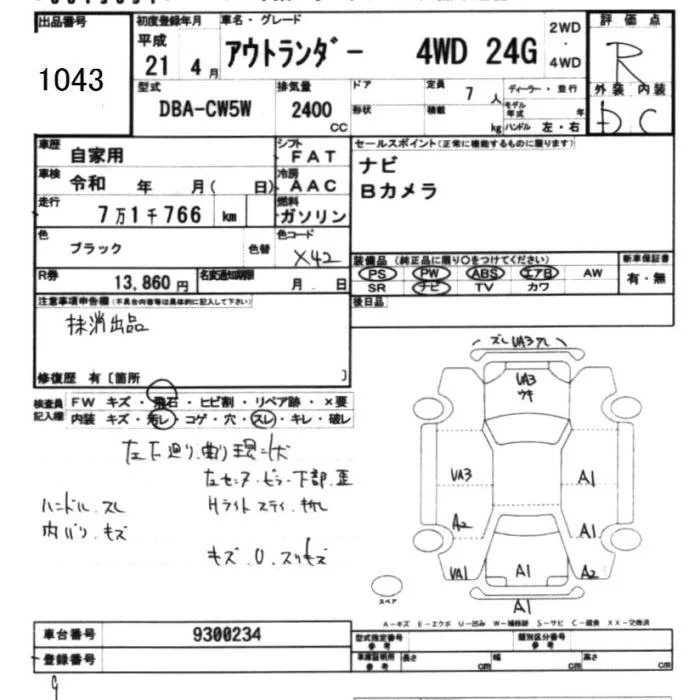 出品番号
1043
初度登録年月
平成
21 4月
車名・グレード
アウトランダー 4WD 24G
2WD
・
4WD
評価点
R
外装 内装
D C
型式
DBA-CW5W
排気量
2400
CC
ドア
形状
定員
7人
積載
kg
ディーラー・並行
モデル年式 年
ハンドル 左・右
車歴
自家用
シフト
FAT
車検
令和 年 月( 日)
冷房
AAC
走行
7万1千766 km
燃料
ガソリン
色
ブラック
色替
色コード
X42
R券
13,860円
名変通知期限
月 日
セールスポイント(正常に機能するものに限ります)
ナビ
Bカメラ
装備品(純正品に限り○をつけてください)
PS PW ABS エアB AW
SR ナビ TV カワ
新車保証書
有・無
後日品
注意事項申告欄(不具合内容等は具体的に記入して下さい)
抹消出品
修復歴 有〔箇所 〕
検査員記入欄
FW キズ・飛石・ヒビ割・リペア跡・×要
内装 キズ・汚レ・コゲ・穴・スレ・キレ・破レ
ハンドル.スレ
内バリ.キズ
Hライト ステイ.折れ
キズ.U.スリキズ
ズレ UA3 ワレ
UA3
ウキ
UA3
A1
A2
A1
UA1
A1
A2
A1
スペア
A－キズ E－エクボ U－凹み W－補修跡 S－サビ C－腐食 XX－交換済
車台番号
9300234
登録番号
型式指定番号
参考
類別区分番号
参考
車庫証明用
参考
長さ cm
幅 cm
高さ cm